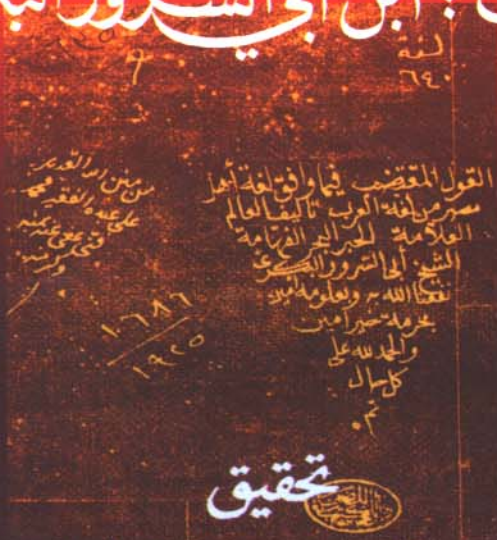 ابن أبي السرور الب
لغة
٦٤٠
القول المقتضب فيما وافق لغة أهل
مصر من لغة العرب تأليف العالم
العلامة الحبر البحر الفهامة
الشيخ أبي السرور البكري
نفعنا الله به وبعلومه امين
بحرمة امين
والحمد لله على
كل حال
تم
من منن الله القدير
على عبده الفقير محمد
١٠٦٨٦
١٩٢٥
تحقيق